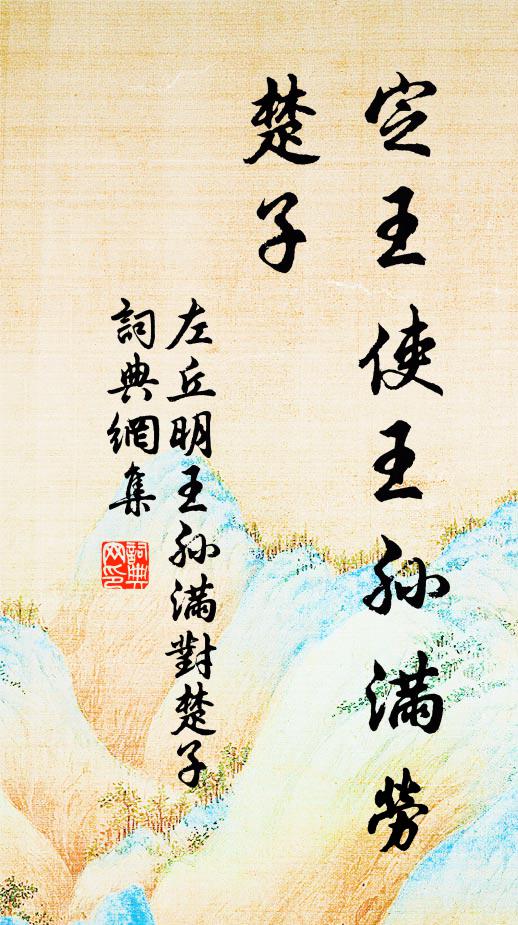 定王使王孫滿勞
楚子
左丘明王孫滿對楚子
詞典網集
詞典网印